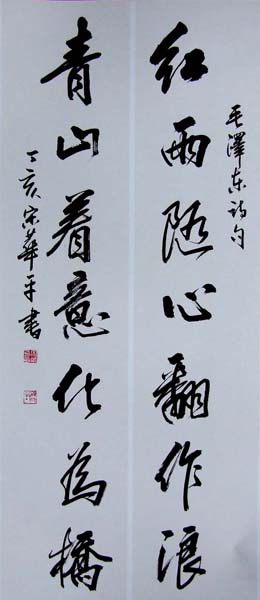 毛澤东詩句
红雨随心翻作浪
青山着意化為橋
丁亥宋華平書